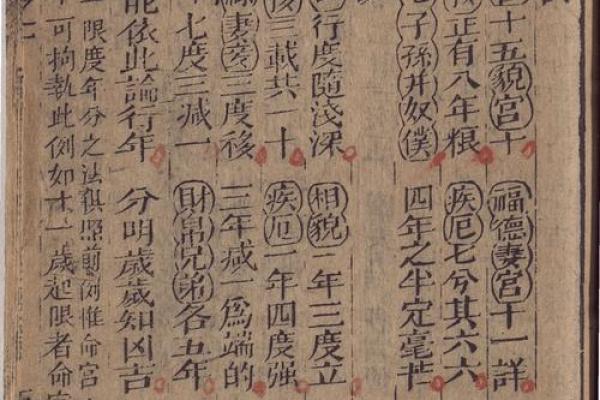 十五貌宮十 福德妻宮十一詳
正有八年粮 疾厄七兮其六六
子孫并奴僕 四年之半定毫芒
行度隨淺深 相貌二年三度立
三載共一十 疾厄一年四度强
妻妾三度移 三年减一為端的
七度三减一 財帛兄弟各五年
能依此論行年 分明歲歲知凶吉
一限度年分之法俱照前例惟命宮
可拘執此例如十一歲起限者命宮